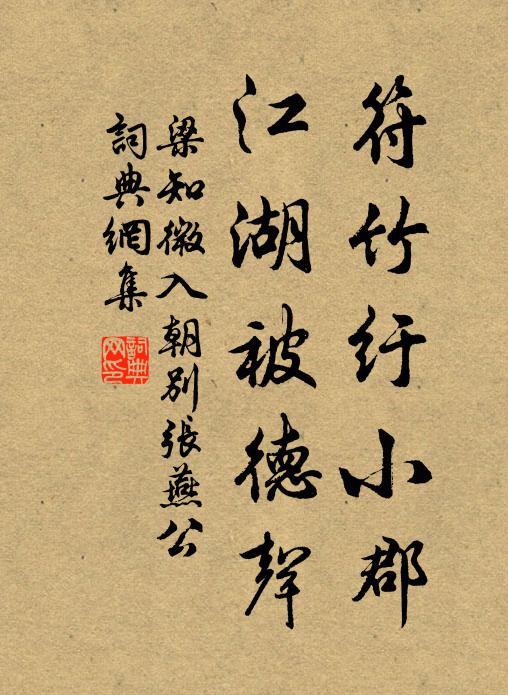 符竹紆小郡
江湖被德聲
梁知微入朝別張燕公
詞典網集
詞典网印